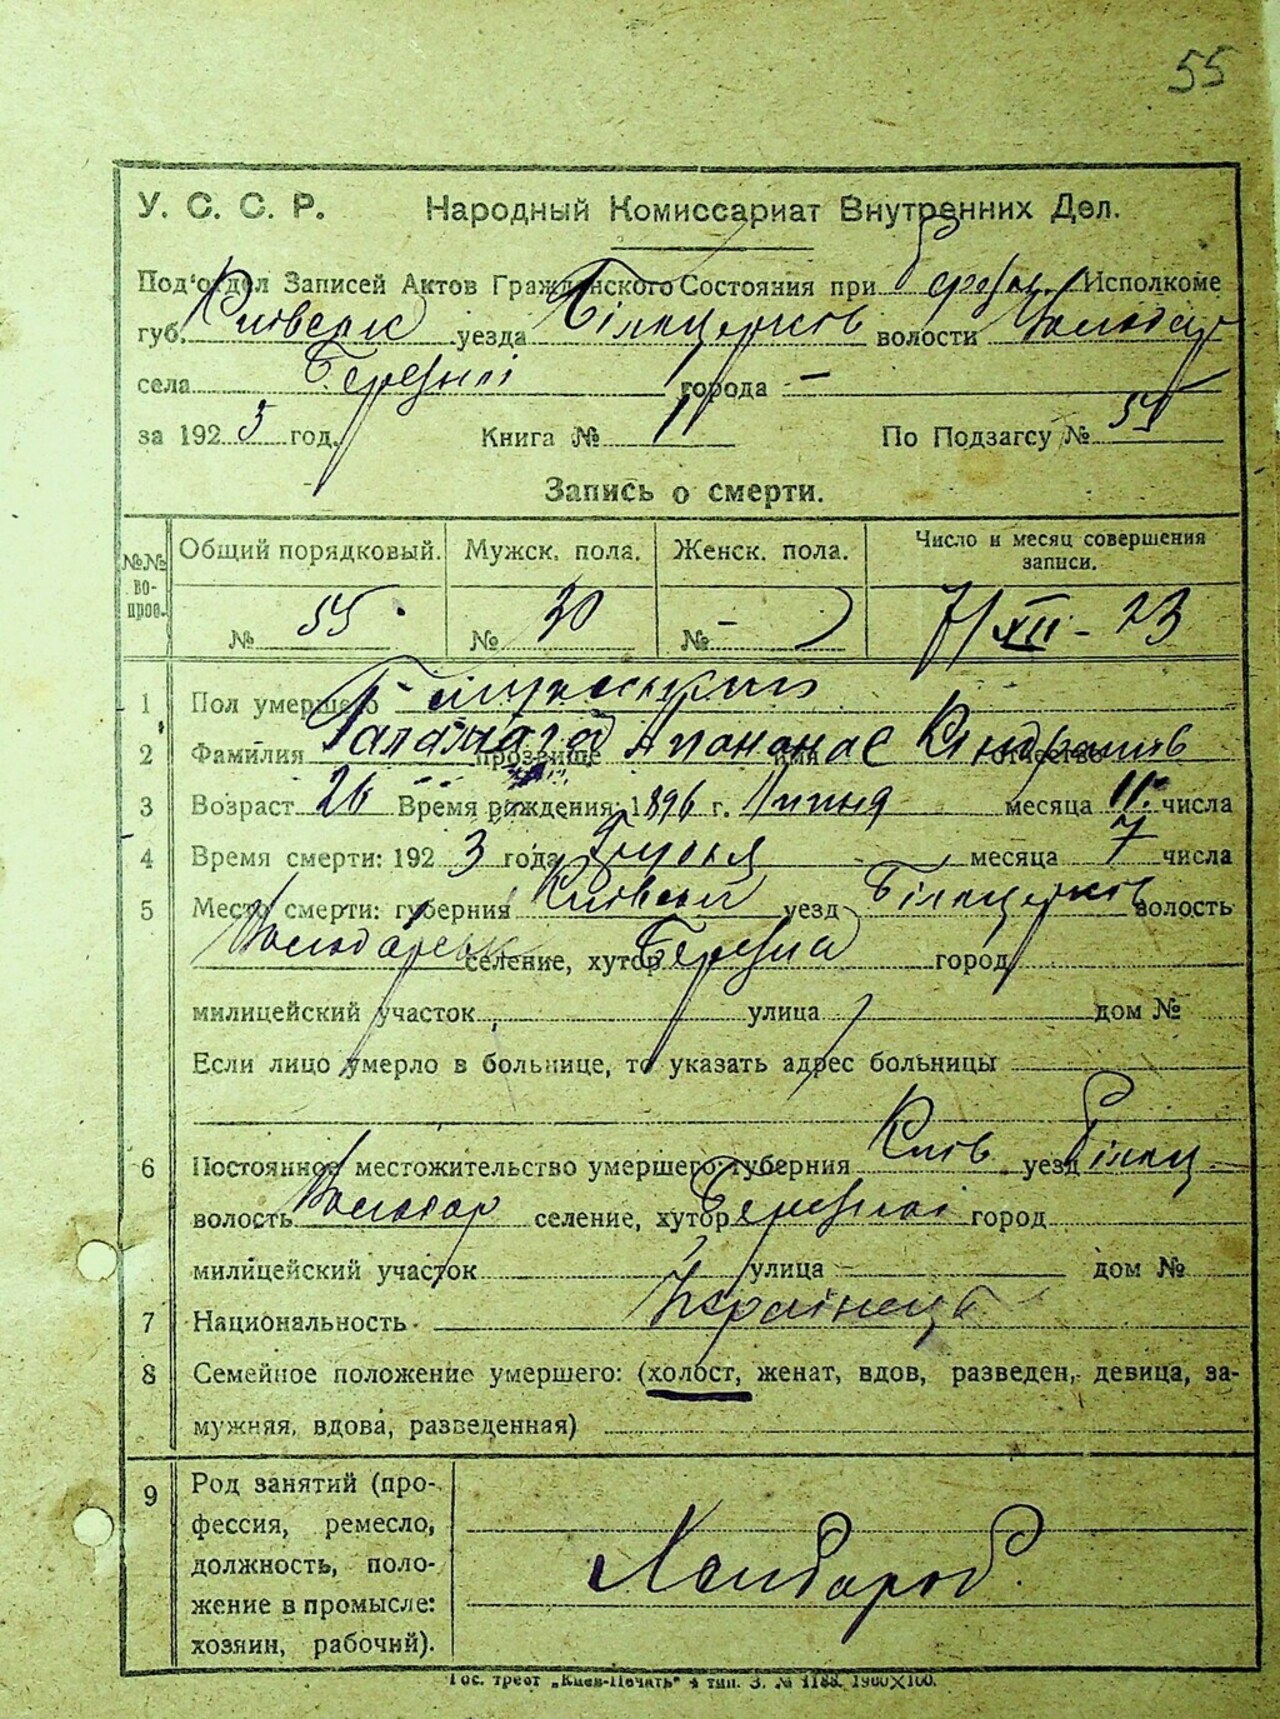 55
У. С. С. Р. Народный Комиссариат Внутренних Дел.
Под'отдел Записей Актов Гражданского Состояния при Исполкоме
губ. Київськ уезда Білацерков волости Володар
села Березні города —
за 1923 год. Книга № 11 По Подзагсу № 55
Запись о смерти.
№№ вопрос. Общий порядковый. Мужск. пола. Женск. пола. Число и месяц совершения записи.
№ 55 № 30 № — 7/XII - 23
1 Пол умершего
2 Фамилия прозвище Апонанас имя отчество
3 Возраст 26 Время рождения: 1896 г. месяца 11 числа
4 Время смерти: 1923 года Грудня месяца 7 числа
5 Место смерти: губерния Київськ уезд Білацерков волость
Володарськ селение, хутор Березна город
милицейский участок улица дом №
Если лицо умерло в больнице, то указать адрес больницы
6 Постоянное местожительство умершего: губерния Київ уезд Білац
волость Володар селение, хутор Березні город
милицейский участок улица — дом №
7 Национальность Українець
8 Семейное положение умершего: (холост, женат, вдов, разведен, девица, за-
мужняя, вдова, разведенная)
9 Род занятий (про-
фессия, ремесло,
должность, поло-
жение в промысле:
хозяин, рабочий).
Хлибороб.
Гос. трест „Киев-Печать" 4 тип. З. № 1188. 1960×100.